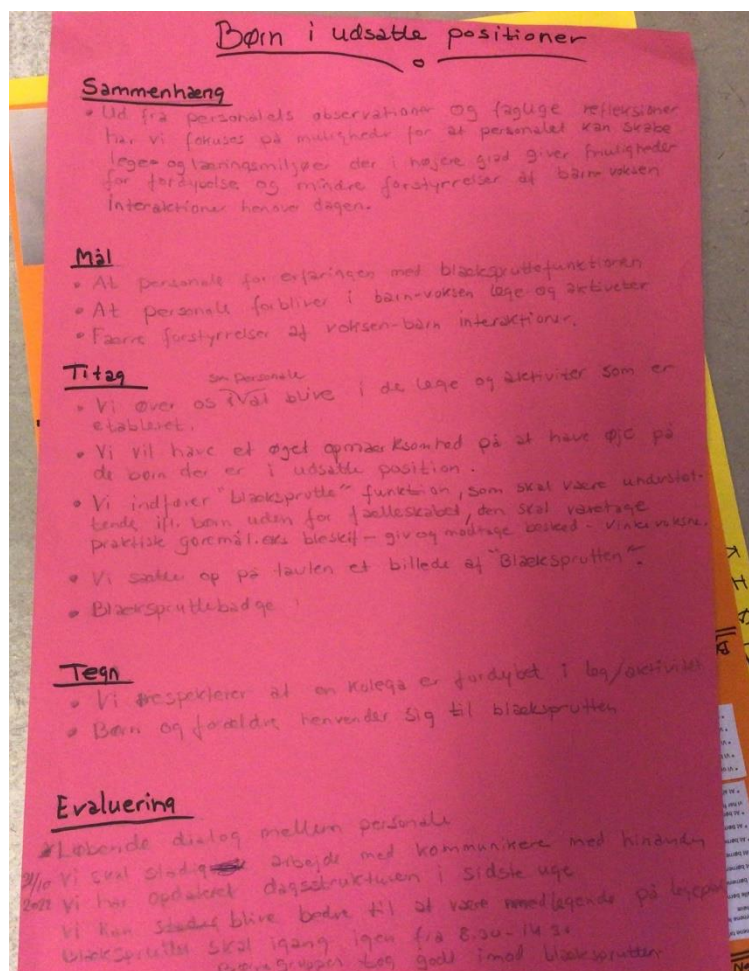 Børn i udsatte positioner
Sammenhæng
• Ud fra personalets observationer og faglige refleksioner
har vi fokuses på mulighede for at personalet kan skabe
lege- og læringsmiljøer der i højere grad giver muligheder
for fordybelse og mindre forstyrrelser af barn-voksen
interaktioner henover dagen.
Mål
• At personale for erfaringen med blækspruttefunktionen
• At personale forbliver i barn-voksen lege og
• Færre forstyrrelser af voksen-barn interaktioner.
Titag
som personale
• Vi øver os i at blive i de lege og aktiviter som er
etableret.
• Vi vil have et øget opmærksomhed på at have øje på
de børn der er i udsatte position.
• Vi indfører "blæksprutte" funktion, som skal være understøt-
tende ift. børn uden for fælleskabet, den skal varetage
praktisk gøremål. eks bleskift - giv og modtage besked - vinke voksne.
• Vi sætter op på tavlen et billede af "Blæksprutten".
• Blækspruttebadge
Tegn
• Vi respekterer at en kolega er fordybet i leg/aktivitet
• Børn og forældre henvender sig til blæksprutten
Evaluering
Løbende dialog mellem personale
Vi skal stadig arbejde med kommunikere med hinanden
2022 Vi har opdateret dagsstrukturen i sidste uge
Vi kan blive bedre til at være medlegende på
skal igang igen fra 8.30-14.30
tog godt imod blæksprutten